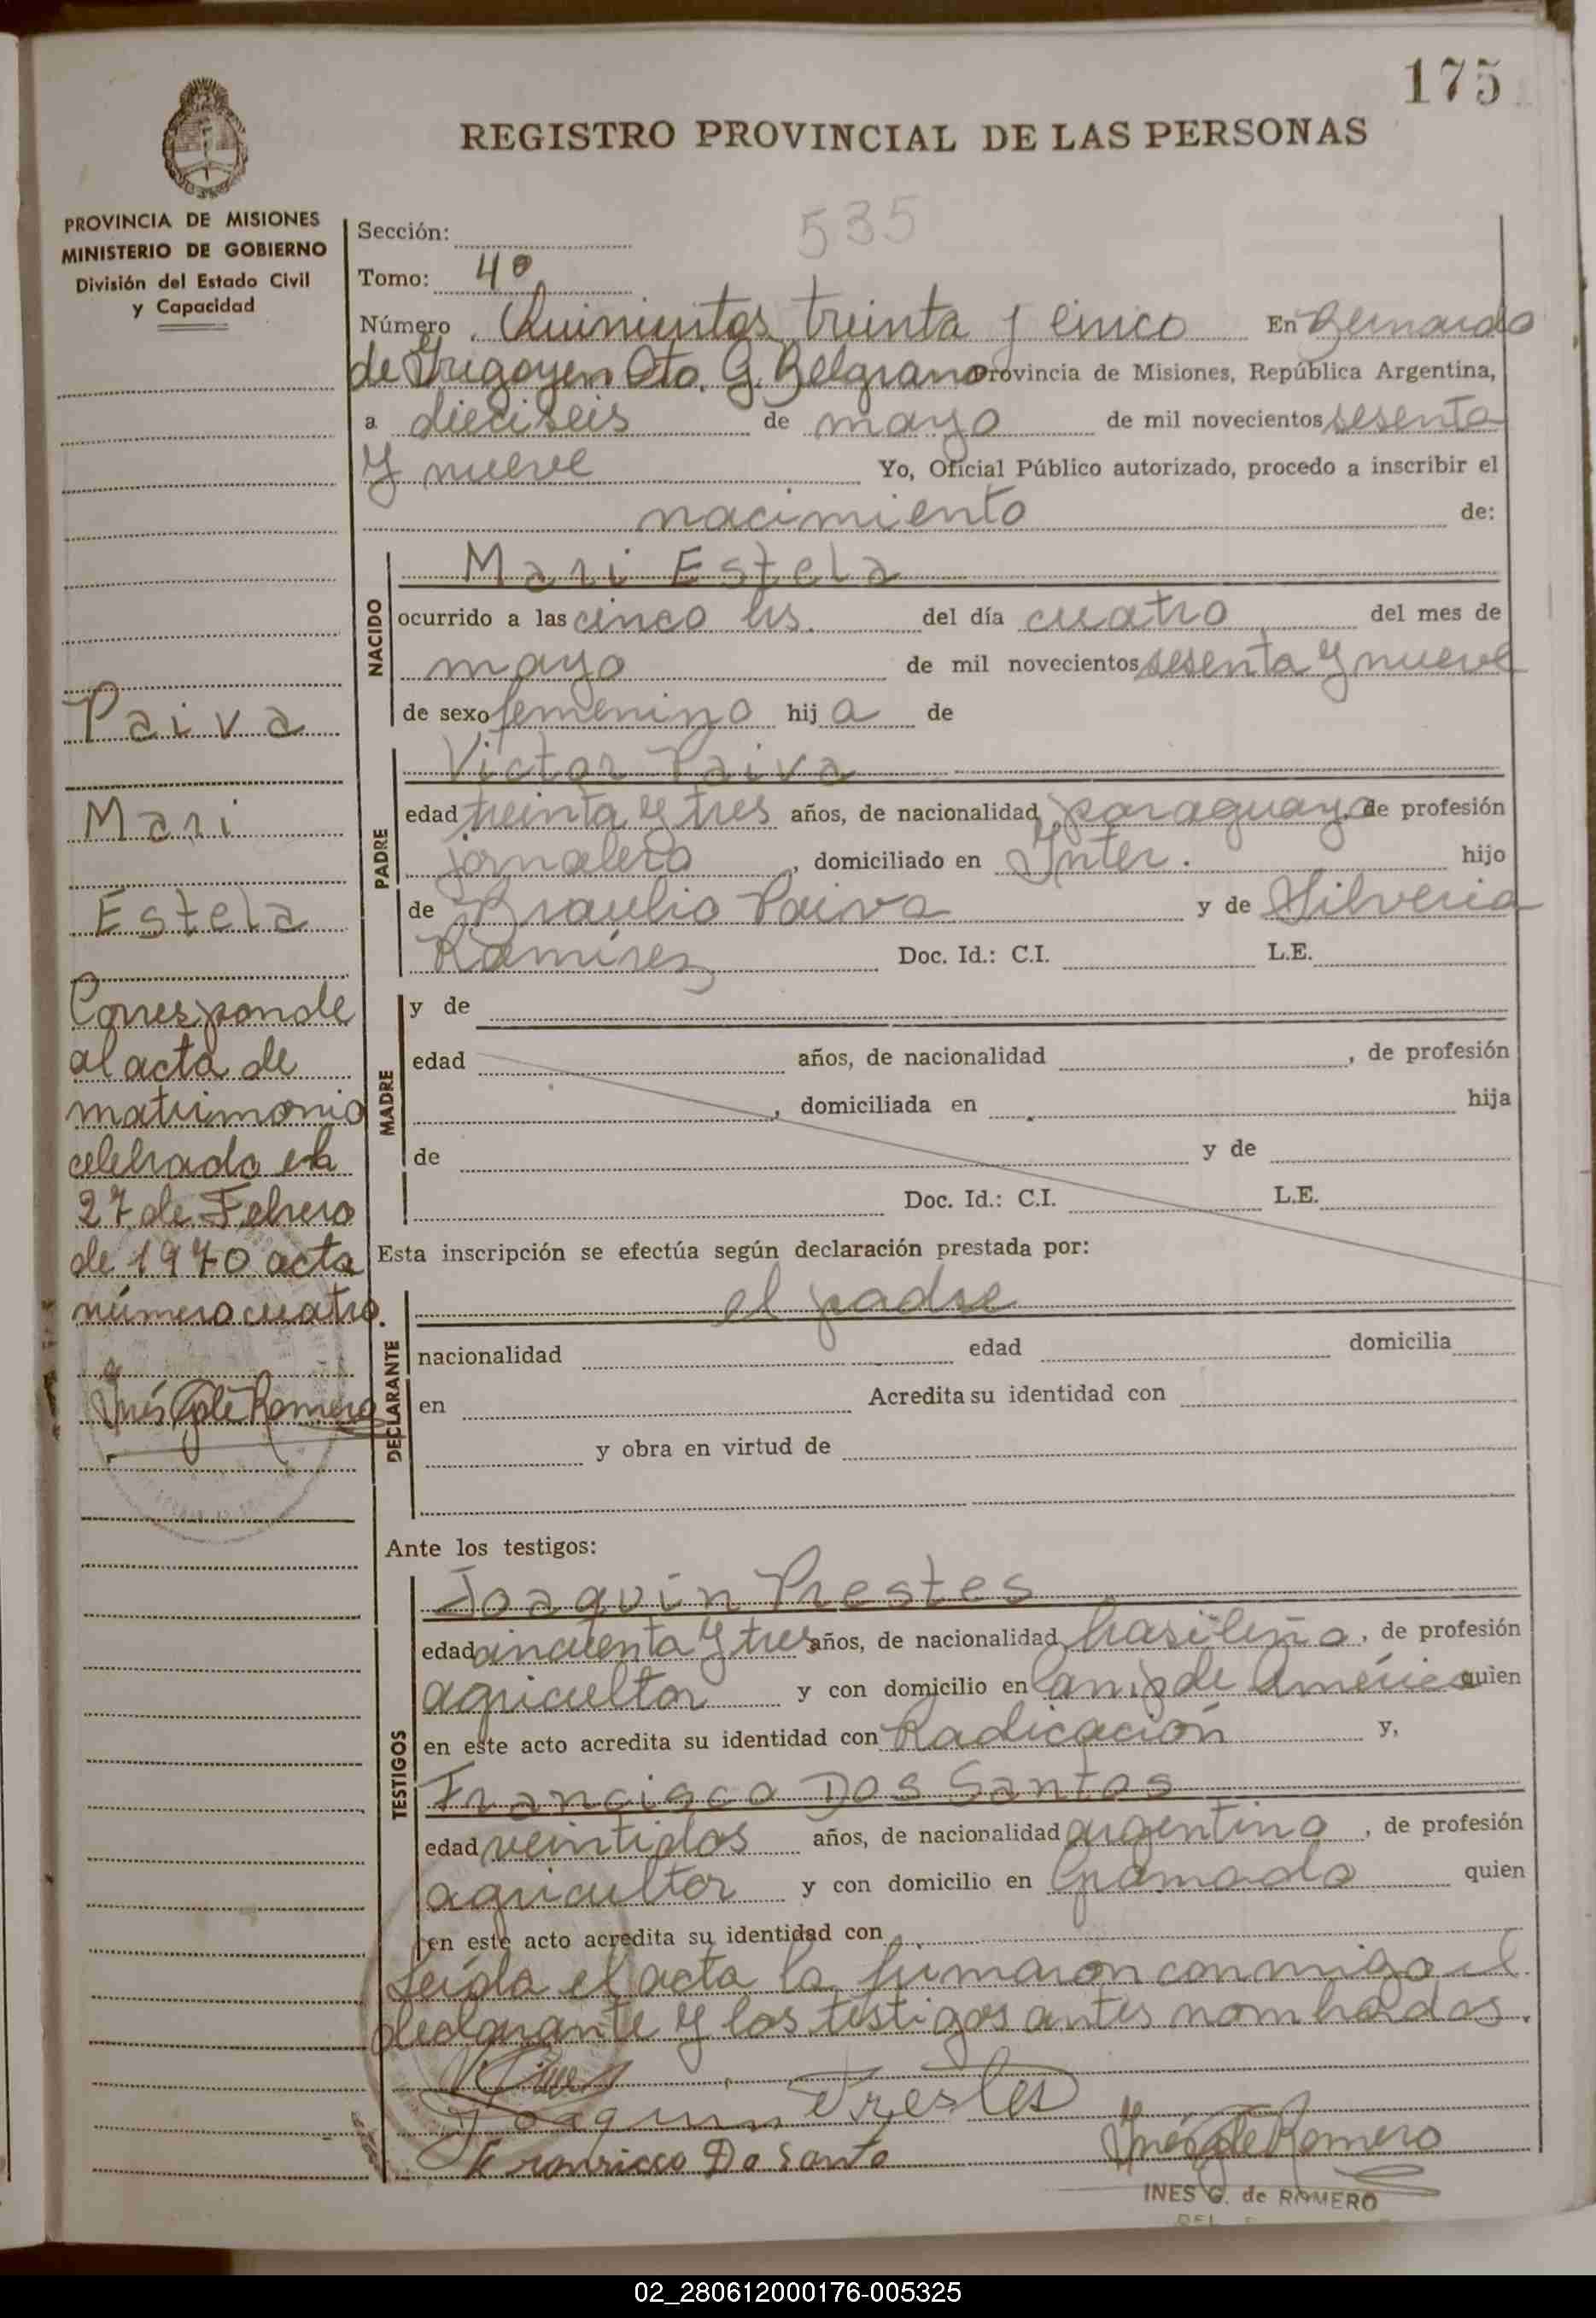 175
REGISTRO PROVINCIAL DE LAS PERSONAS
PROVINCIA DE MISIONES
MINISTERIO DE GOBIERNO
División del Estado Civil
y Capacidad
535
Sección:
Tomo: 4º
Número Quinientos treinta y cinco En Bernardo
de Yrigoyen Dto. G. Belgrano Provincia de Misiones, República Argentina,
a dieciseis de mayo de mil novecientos sesenta
y nueve Yo, Oficial Público autorizado, procedo a inscribir el
nacimiento de:
NACIDO
Mari Estela
ocurrido a las cinco hs. del día cuatro del mes de
mayo de mil novecientos sesenta y nueve
de sexo femenino hij a de
PADRE
Victor Paiva
edad treinta y tres años, de nacionalidad paraguaya de profesión
jornalero, domiciliado en Inter. hijo
de Braulio Paiva y de Silveria
Ramírez Doc. Id.: C.I. L.E.
MADRE
y de
edad años, de nacionalidad , de profesión
, domiciliada en hija
de y de
Doc. Id.: C.I. L.E.
Esta inscripción se efectúa según declaración prestada por:
DECLARANTE
el padre
nacionalidad edad domicilia
en Acredita su identidad con
y obra en virtud de
Ante los testigos:
TESTIGOS
Joaquín Prestes
edad cincuenta y tres años, de nacionalidad brasileño, de profesión
agricultor y con domicilio en de América quien
en este acto acredita su identidad con Radicación y,
Francisco Dos Santos
edad veintidos años, de nacionalidad argentino, de profesión
agricultor y con domicilio en Gramado quien
en este acto acredita su identidad con
Leída el acta la firmaron conmigo el
declarante y los testigos antes nombrados.
Joaquin Prestes
Francisco Do Santo
Inés G de Romero
INES G. de ROMERO
Paiva
Mari
Estela
Corresponde
al acta de
matrimonio
celebrado el
27 de Febrero
de 1970 acta
número cuatro.
Inés G de Romero
02_280612000176-005325